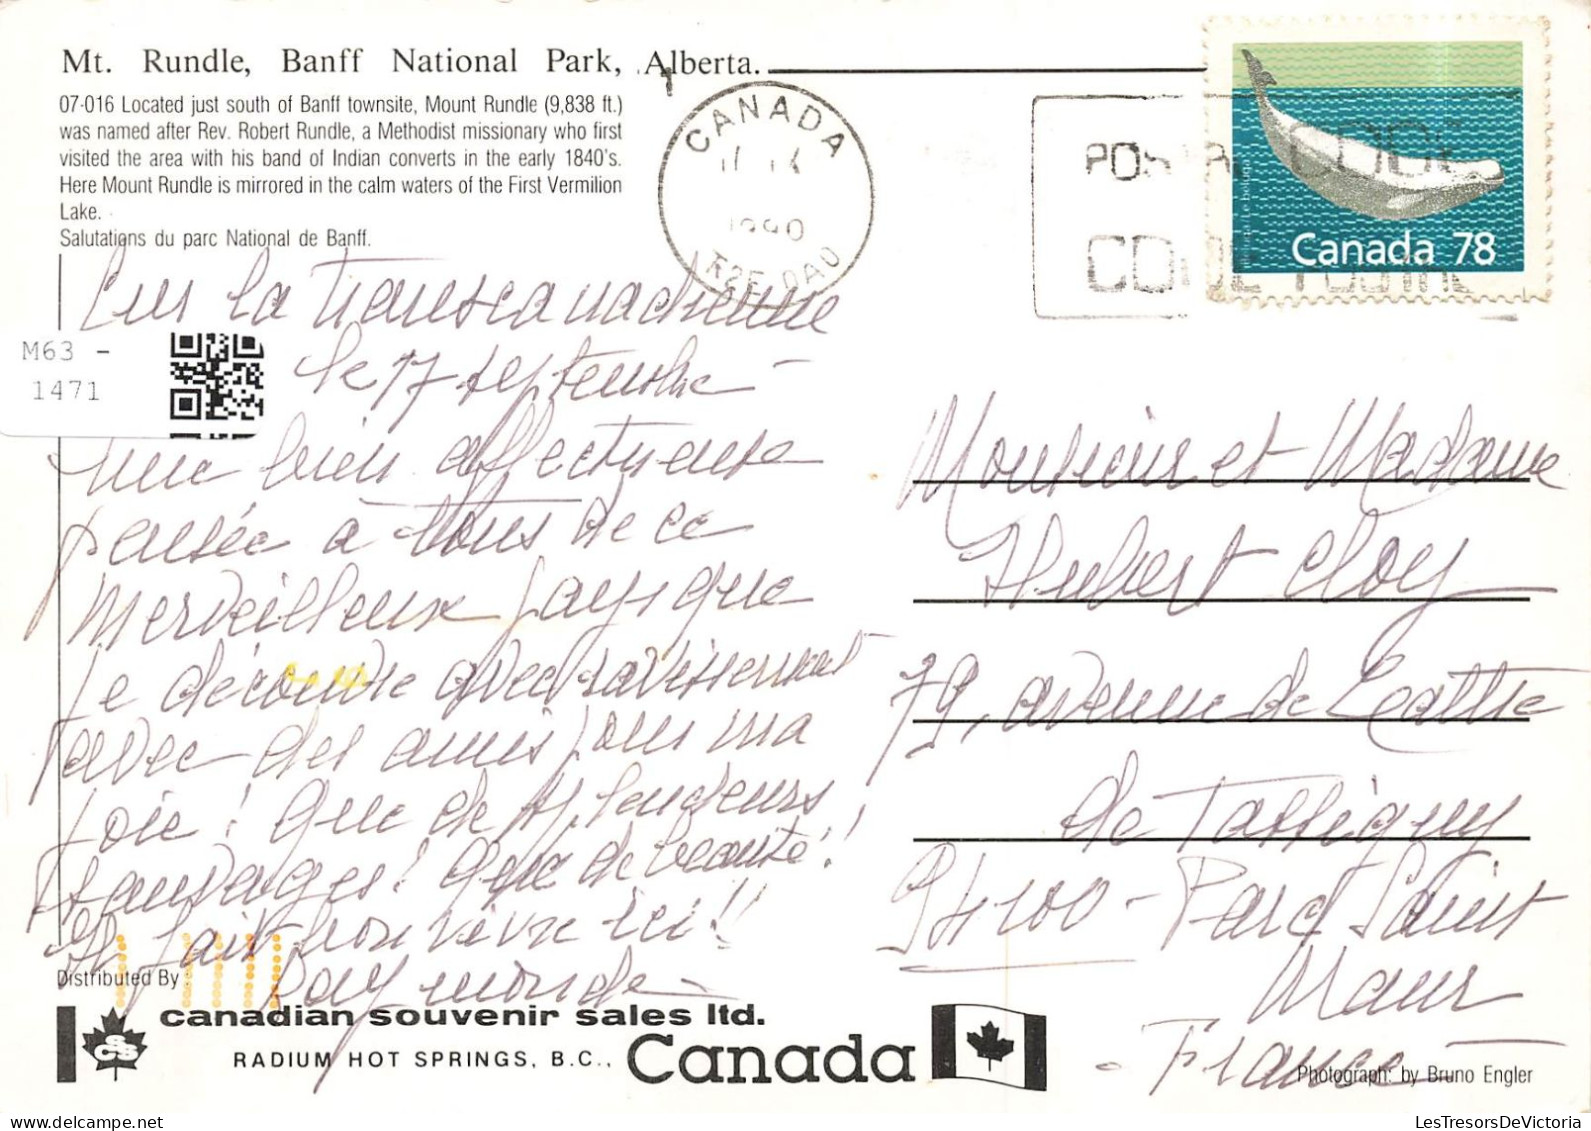 Mt. Rundle, Banff National Park, Alberta.
07-016 Located just south of Banff townsite, Mount Rundle (9,838 ft.)
was named after Rev. Robert Rundle, a Methodist missionary who first
visited the area with his band of Indian converts in the early 1840's.
Here Mount Rundle is mirrored in the calm waters of the First Vermilion
Lake.
Salutations du parc National de Banff.
CANADA
1990
T2E 0A0
POSTAL CODE
CODE POSTAL
Canada 78
M63 -
1471
Sur la transcanadienne
le 17 septembre
une bien affectueuse
pensée à tous de ce
merveilleux pays que
je découvre avec ravissement
avec des amis pour ma
joie ! Que de splendeurs
sauvages ! Que de beauté !
Il fait bon vivre ici !!
Raymonde
Monsieur et Madame
Hubert Cloy
79, avenue de Lattre
de Tassigny
94100 - Parc Saint
Maur
- France
Distributed By
CSCS
canadian souvenir sales ltd.
RADIUM HOT SPRINGS, B.C.,
Canada
Photograph: by Bruno Engler
LesTresorsDeVictoria